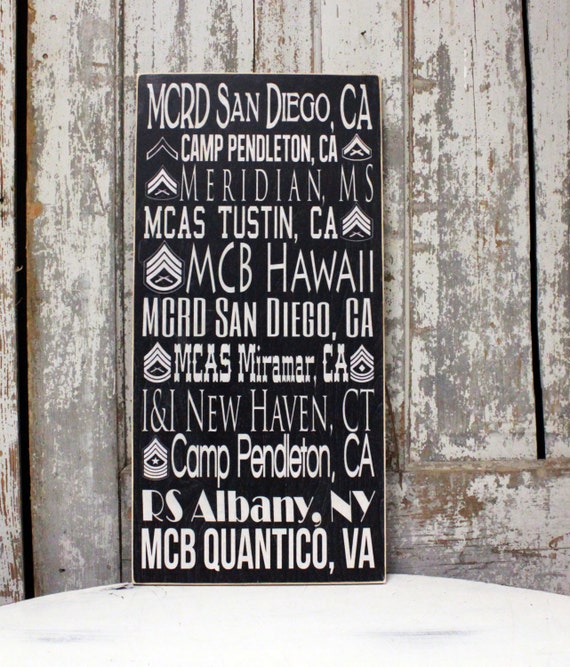 MCRD San Diego, CA
CAMP PENDLETON, CA
MERIDIAN, MS
MCAS TUSTIN, CA
MCB HAWAII
MCRD SAN DIEGO, CA
MCAS Miramar, CA
I&I NEW HAVEN, CT
Camp Pendleton, CA
RS Albany, NY
MCB QUANTICO, VA